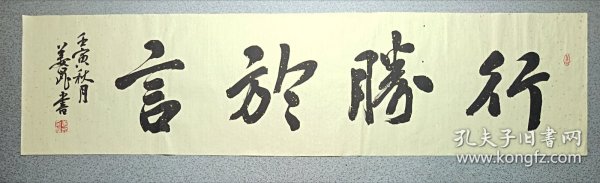 行勝於言
壬寅秋月
姜昆書
孔夫子旧书网
www.kongfz.com